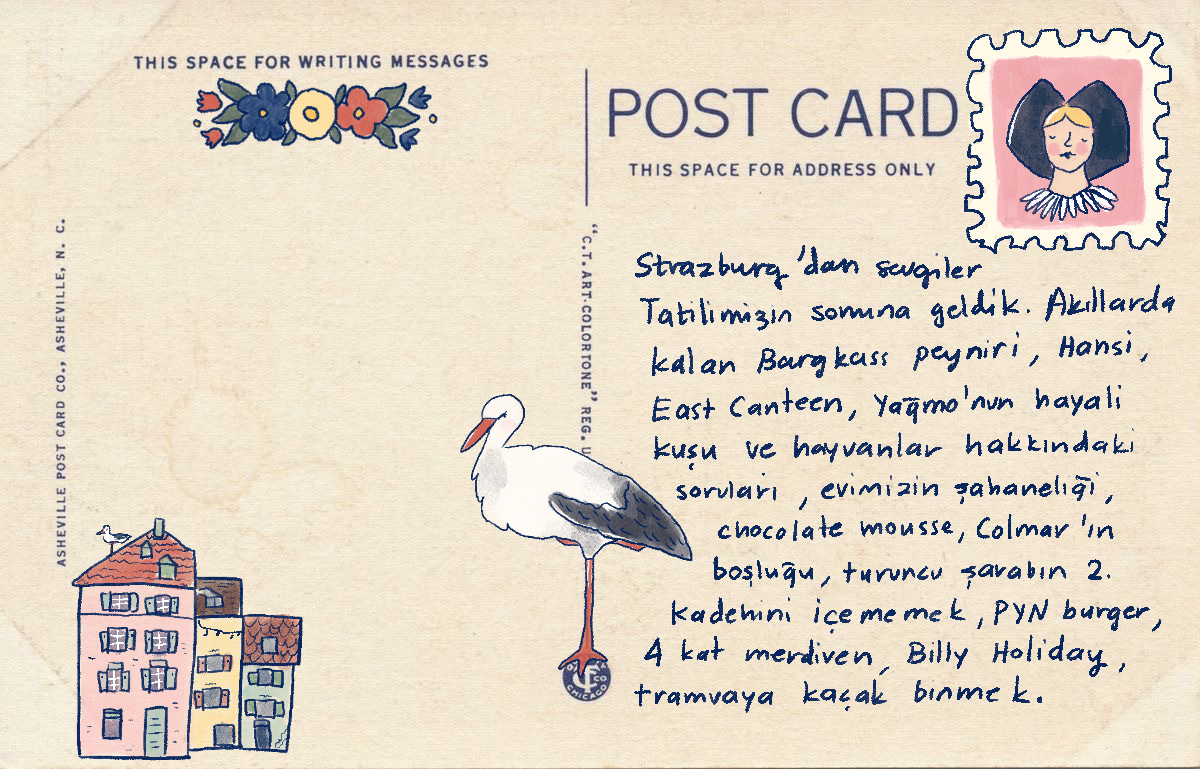 THIS SPACE FOR WRITING MESSAGES
POST CARD
THIS SPACE FOR ADDRESS ONLY
ASHEVILLE POST CARD CO., ASHEVILLE, N. C.
"C.T. ART-COLORTONE" REG. U
Strazburg'dan sevgiler
Tatilimizin sonuna geldik. Akıllarda
kalan Bargkass peyniri, Hansi,
East Canteen, Yağmo'nun hayali
kuşu ve hayvanlar hakkındaki
soruları, evimizin şahaneliği,
chocolate mousse, Colmar'ın
boşluğu, turuncu şarabın 2.
kadehini içememek, PYN burger,
4 kat merdiven, Billy Holiday,
tramvaya kaçak binmek.
CHICAGO